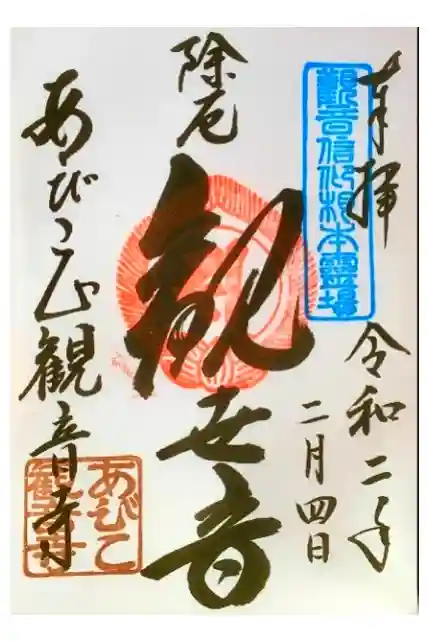 奉拝
觀音信仰根本靈場
令和二年
二月四日
除厄
観世音
あびこ山観音寺
あびこ
観音寺